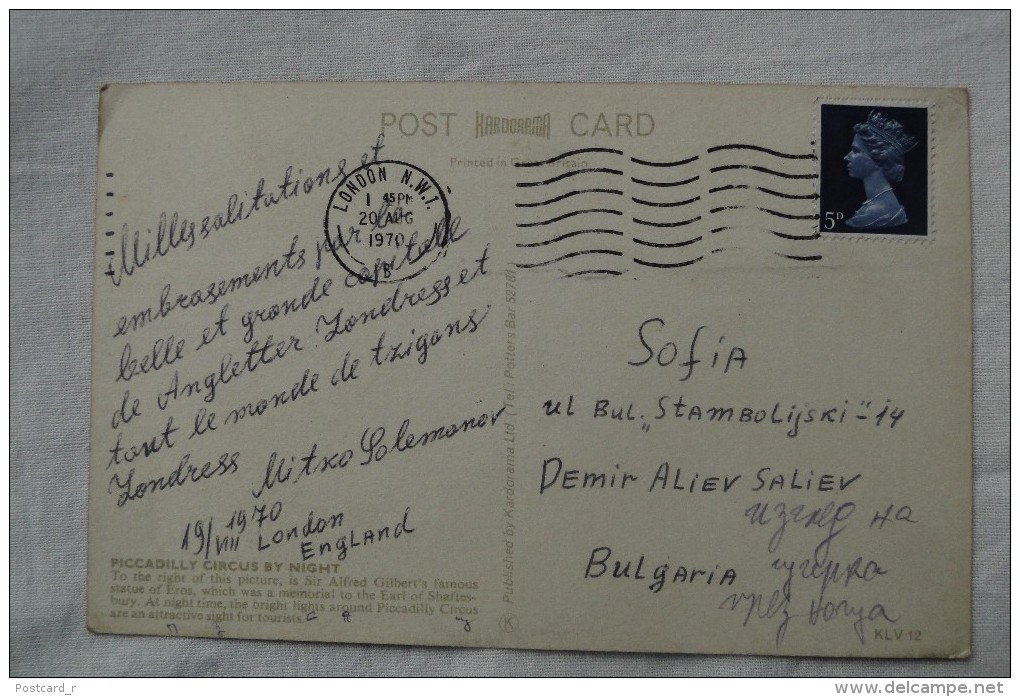 POST KARDORAMA CARD
Printed in Great Britain
LONDON N.W.1.
1 45PM
20 AUG
1970
B
5D
Milles salitations et
embrasements par la
belle et grande capitalle
de Angletter Londress et
tout le monde de tzigans
Londress Mitko Solemanov
19/VIII 1970
London
England
PICCADILLY CIRCUS BY NIGHT
To the right of this picture, is Sir Alfred Gilbert's famous
statue of Eros, which was a memorial to the Earl of Shaftes-
bury. At night time, the bright lights around Piccadilly Circus
are an attractive sight for tourists.
Published by Kardorama Ltd (Tel: Potters Bar 52781)
K
Sofia
ul Bul. „Stambolijski"-14
Demir Aliev Saliev
изглед на
Bulgaria
през нощта
KLV 12
Postcard_r
www.delcampe.net